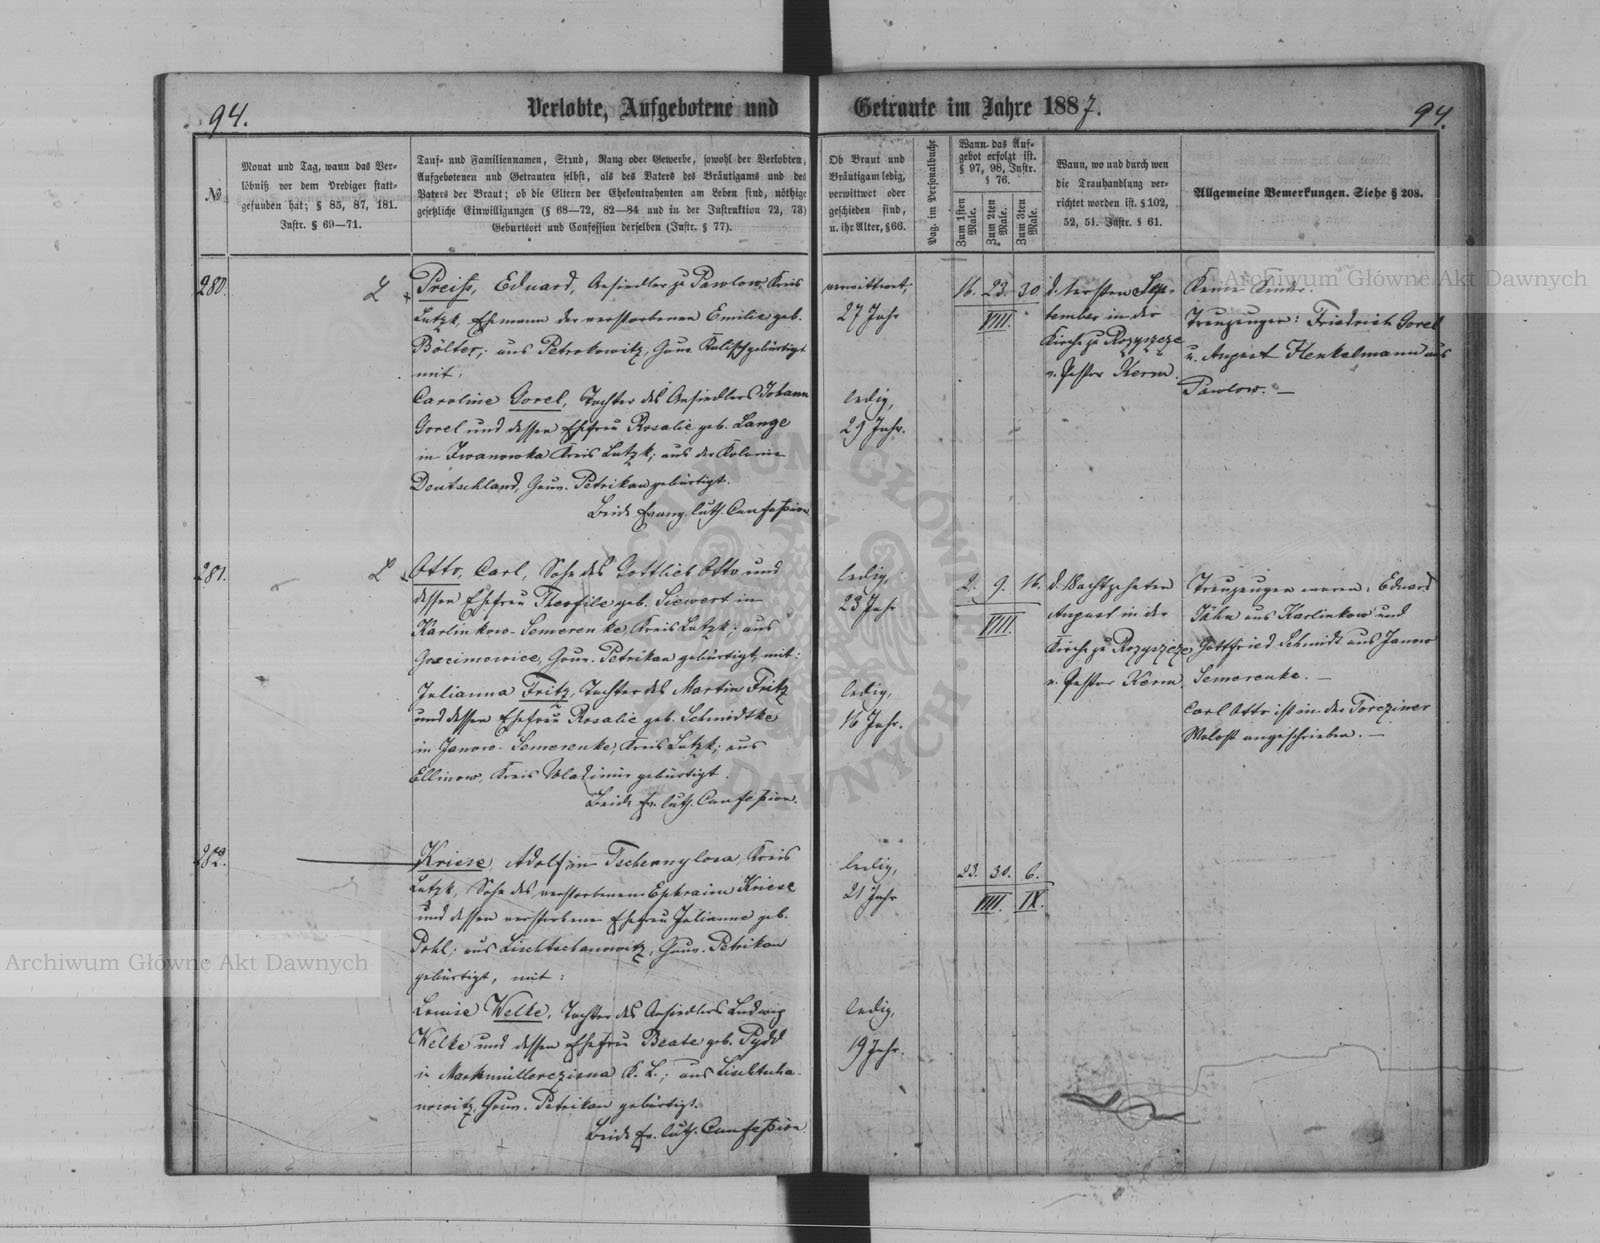 94.
Verlobte, Aufgebotene und Getraute im Jahre 1887.
94.
№
Monat und Tag, wann das Ver-
löbniß vor dem Prediger statt-
gefunden hat; § 85, 87, 181.
Instr. § 69—71.
Tauf- und Familiennamen, Stand, Rang oder Gewerbe, sowohl der Verlobten,
Aufgebotenen und Getrauten selbst, als des Vaters des Bräutigams und des
Vaters der Braut; ob die Eltern der Ehekontrahenten am Leben sind, nöthige
gesetzliche Einwilligungen (§ 68—72, 82—84 und in der Instruktion 72, 73)
Geburtsort und Confession derselben (Instr. § 77).
Ob Braut und
Bräutigam ledig,
verwittwet oder
geschieden sind,
u. ihr Alter, § 66.
Pag. im Personalbuche
Wann das Auf-
gebot erfolgt ist.
§ 97, 98, Instr.
§ 76.
Zum 1sten
Male.
Zum 2ten
Male.
Zum 3ten
Male.
Wann, wo und durch wen
die Trauhandlung ver-
richtet worden ist. § 102,
52, 51. Instr. § 61.
Allgemeine Bemerkungen. Siehe § 208.
280.
L
Preiss, Eduard, Ansiedler zu Pawlow, Kreis
Lutzk, Ehemann der verstorbenen Emilie geb.
Bölter; aus Petrokowitz, Gouv. Kalisch gebürtigt
mit:
Caroline Gorel, Tochter des Ansiedlers Johann
Gorel und dessen Ehefrau Rosalie geb. Lange
in Iwanowka Kreis Lutzk; aus der Kolonie
Deutschland, Gouv. Petrikau gebürtigt.
Beide Evang. luth. Confession.
verwittwet,
27 Jahr
ledig,
29 Jahr.
16. 23. 30.
VIII.
d. ersten Sep-
tember in der
Kirche zu Rozyszcze
v. Pastor Kerm.
Keine Kinder.
Trauzeugen: Friedrich Gorel
u. August Henkelmann aus
Pawlow. —
281.
L
Otto, Carl, Sohn des Gottlieb Otto und
dessen Ehefrau Theofile geb. Siewert in
Karlinkow-Semerenke, Kreis Lutzk; aus
Gouv. Petrikau gebürtigt, mit:
Julianna Fritz, Tochter des Martin Fritz
und dessen Ehefrau Rosalie geb. Schmidtke
in Janow-Semerenke, Kreis Lutzk; aus
Ellinow, Kreis Wladimir gebürtigt.
Beide Ev. luth. Confession.
ledig,
23 Jahr
ledig,
16 Jahr.
2. 9. 16.
VIII.
d. Achtzehnten
August in der
Kirche zu Rozyszcze
v. Pastor Kerm.
Trauzeugen waren: Eduard
Jähn aus Karlinkow und
Gottfried Schmidt aus Janow
Semerenke. —
Carl Otto ist in der Torcziner
Wolost angeschrieben. —
282.
Kriese, Adolf in Tschernylosa, Kreis
Lutzk, Sohn des verstorbenen Ephraim Kriese
und dessen verstorbenen Ehefrau Julianne geb.
Pohl; aus Lischtschanowitz, Gouv. Petrikau
gebürtigt, mit:
Louise Welke, Tochter des Ansiedlers Ludwig
Welke und dessen Ehefrau Beate geb. Pydd
in K. L.; aus Lischtscha-
nowitz, Gouv. Petrikau gebürtigt.
Beide Ev. luth. Confession.
ledig,
21 Jahr
ledig,
19 Jahr.
23. 30. 6.
VIII. IX.
Archiwum Główne Akt Dawnych
Archiwum Główne Akt Dawnych
ARCHIWUM GŁÓWNE AKT DAWNYCH